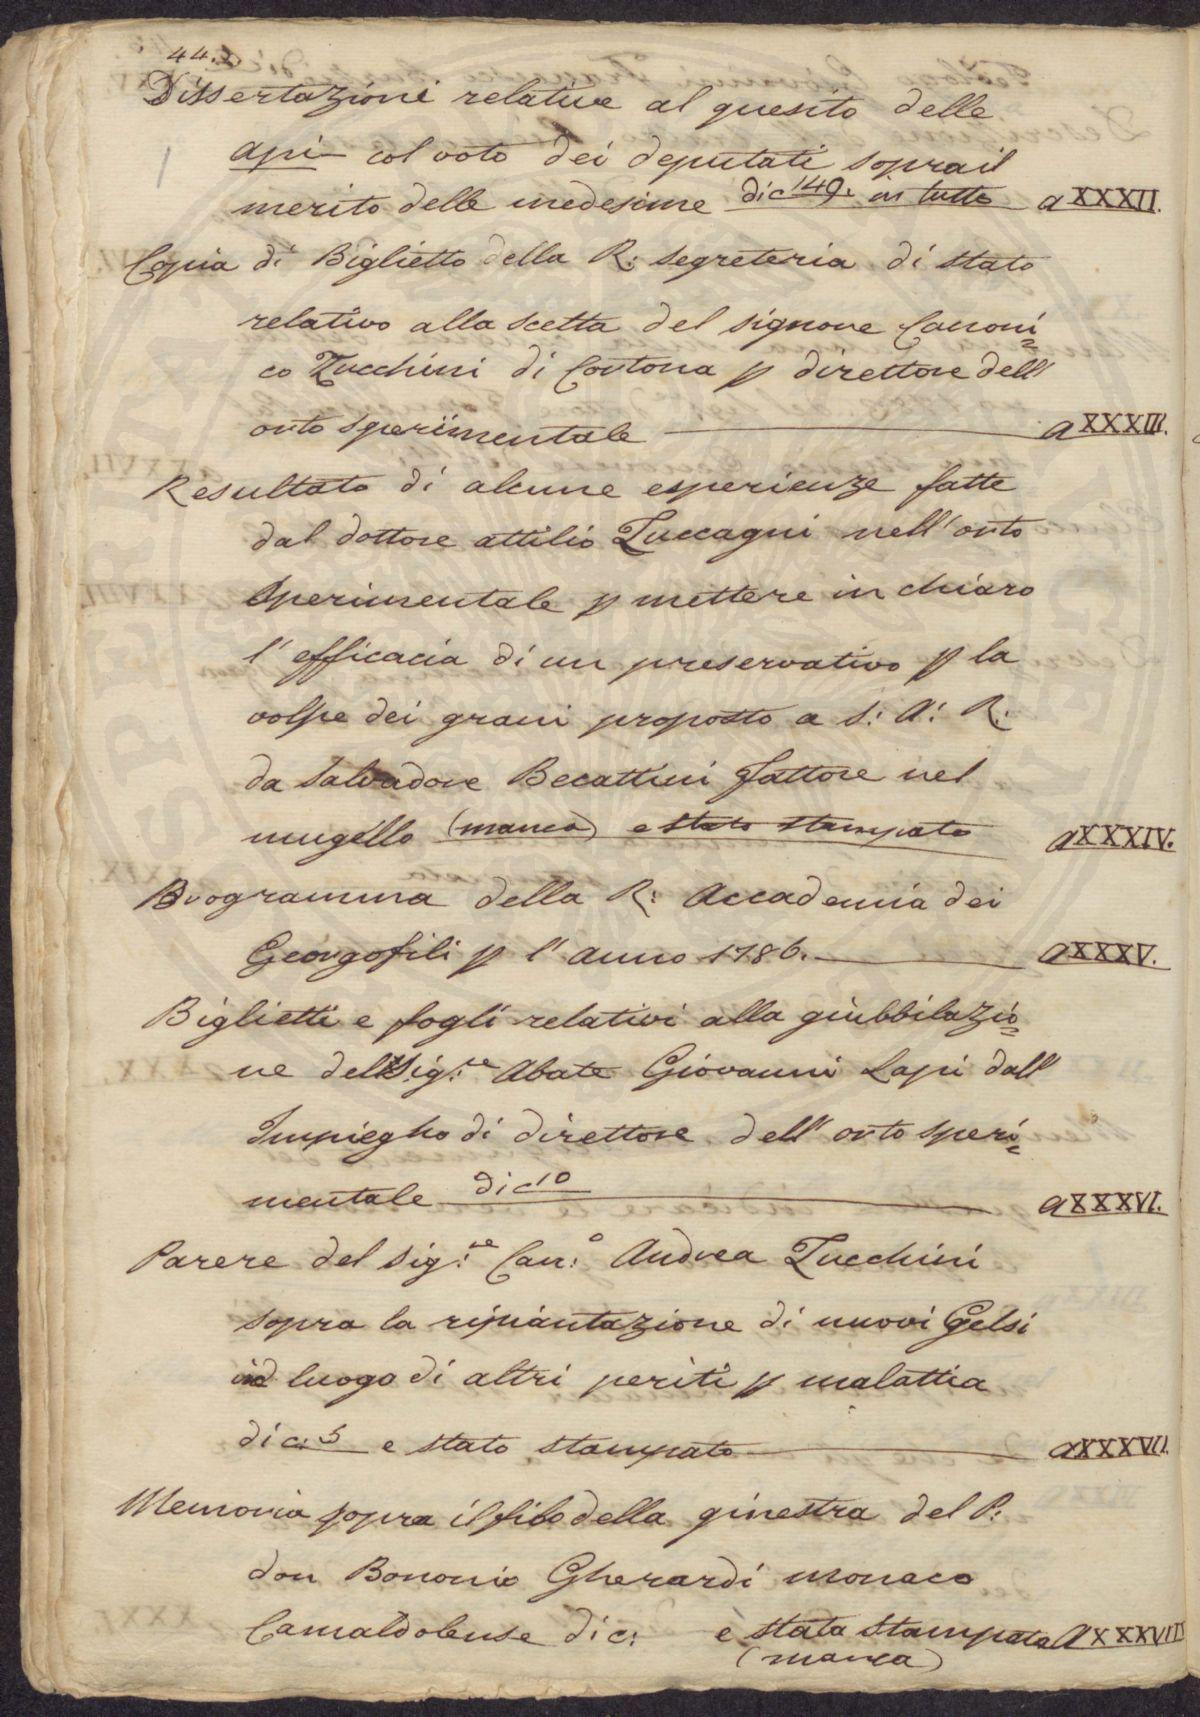 44.
Dissertazioni relative al quesito delle
api col voto dei deputati sopra il
merito delle medesime di c 149. in tutto a XXXII.
Copia di Biglietto della R: segreteria di stato
relativo alla scelta del signore Canoni=
co Zucchini di Cortona p direttore dell'
orto sperimentale a XXXIII.
Resultato di alcune esperienze fatte
dal dottore attilio Zuccagni nell'orto
Sperimentale p mettere in chiaro
l'efficacia di un preservativo p la
volpe dei grani proposto a S: A: R:
da Salvadore Becattini fattore nel
mugello (manca) e stato stampato a XXXIV.
Programma della R: Accademia dei
Georgofili p l'anno 1786. a XXXV.
Biglietti e fogli relativi alla giubbilazio=
ne del Sig:re Abate Giovanni Lapi dall'
Impiegho di direttore dell'orto speri=
mentale di c 10 a XXXVI.
Parere del sig:re Can:o Andrea Zucchini
sopra la ripiantazione di nuovi Gelsi
in luogo di altri periti p malattia
di c: 5 e stato stampato a XXXVII.
Memoria sopra il filo della ginestra del P:
don Bononio Gherardi monaco
Camaldolense di c: è stata stampata a XXXVIII
(manca)